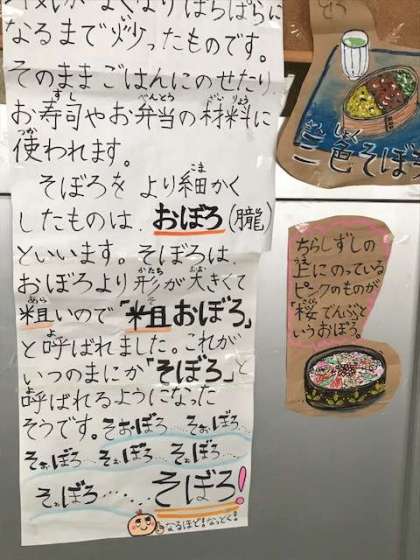 なるまで炒ったものです。
そのままごはんにのせたり、
お寿司やお弁当の材料に
使われます。
そぼろを より細かく
したものは、おぼろ(朧)
といいます。そぼろは、
おぼろより形が大きくて
粗いので「粗おぼろ」
と呼ばれました。これが
いつのまにか「そぼろ」と
呼ばれるようになった
そうです。そおぼろ……そぉぼろ…
そぉぼろ……そぉぼろ……そぉぼろ…
そぉぼろ……そぼろ!
なるほど!なっとく!
三色そぼろ
ちらしずしの
上にのっている
ピンクのものが
「桜でんぶ」と
いうおぼろ。